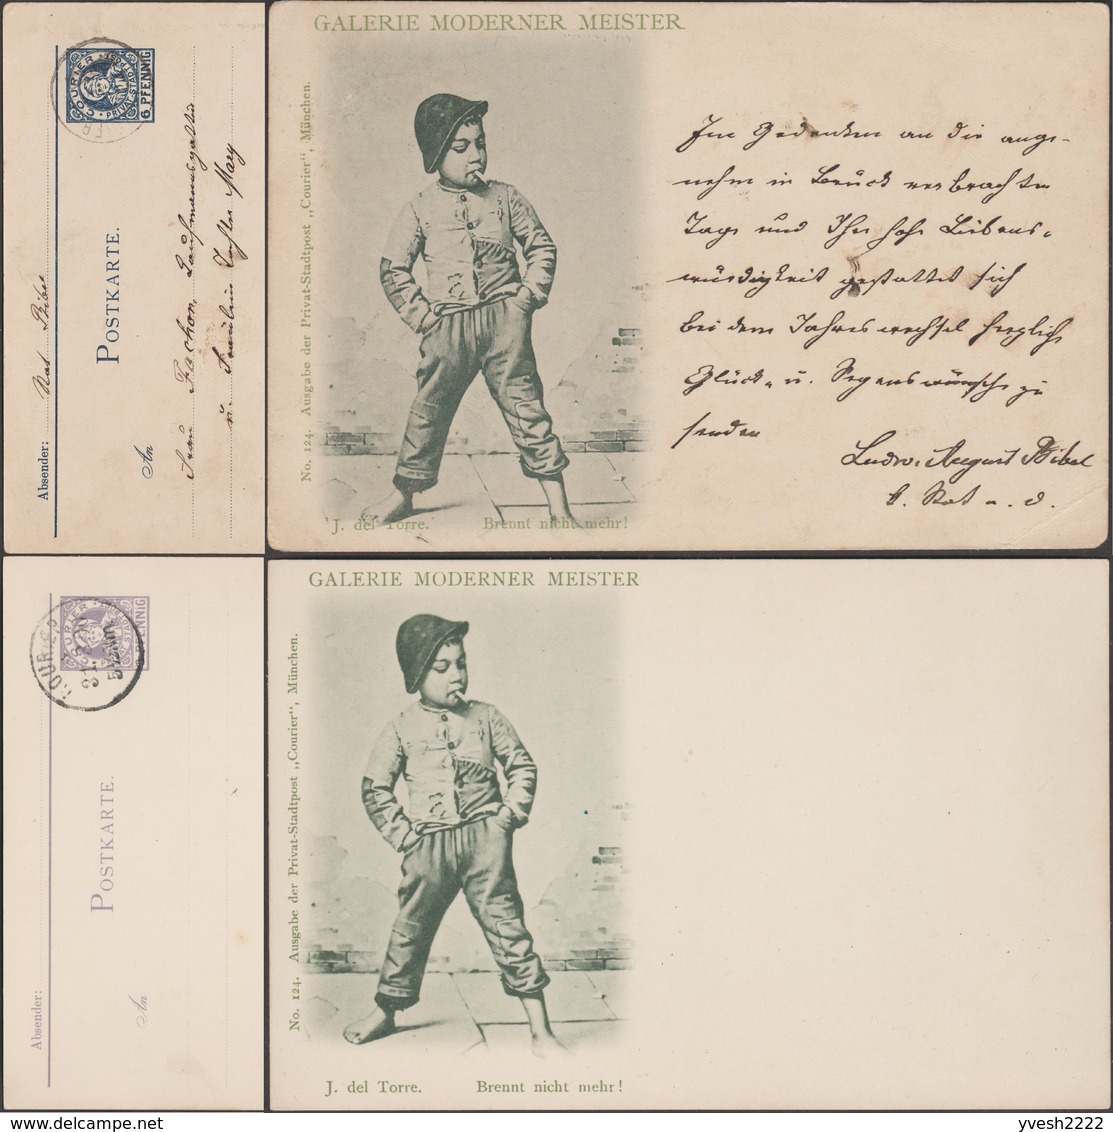 COURIER
PRIVAT-STADTPOST
6 PFENNIG
POSTKARTE.
An
Frau
u. Fräulein Tochter Mary
Absender:
GALERIE MODERNER MEISTER
No. 124. Ausgabe der Privat-Stadtpost „Courier“, München.
J. del Torre.
Brennt nicht mehr!
Im Gedenken an die ange-
nehm in Bruck verbrachten
Tage und Ihre hohe Liebens-
würdigkeit gestattet sich
bei dem Jahreswechsel herzliche
Glück- u. Segenswünsche zu
senden
Ludw. August Bibel
COURIER
31. 8. 00
POSTKARTE.
An
Absender:
GALERIE MODERNER MEISTER
No. 124. Ausgabe der Privat-Stadtpost „Courier“, München.
J. del Torre.
Brennt nicht mehr!
yvesh2222